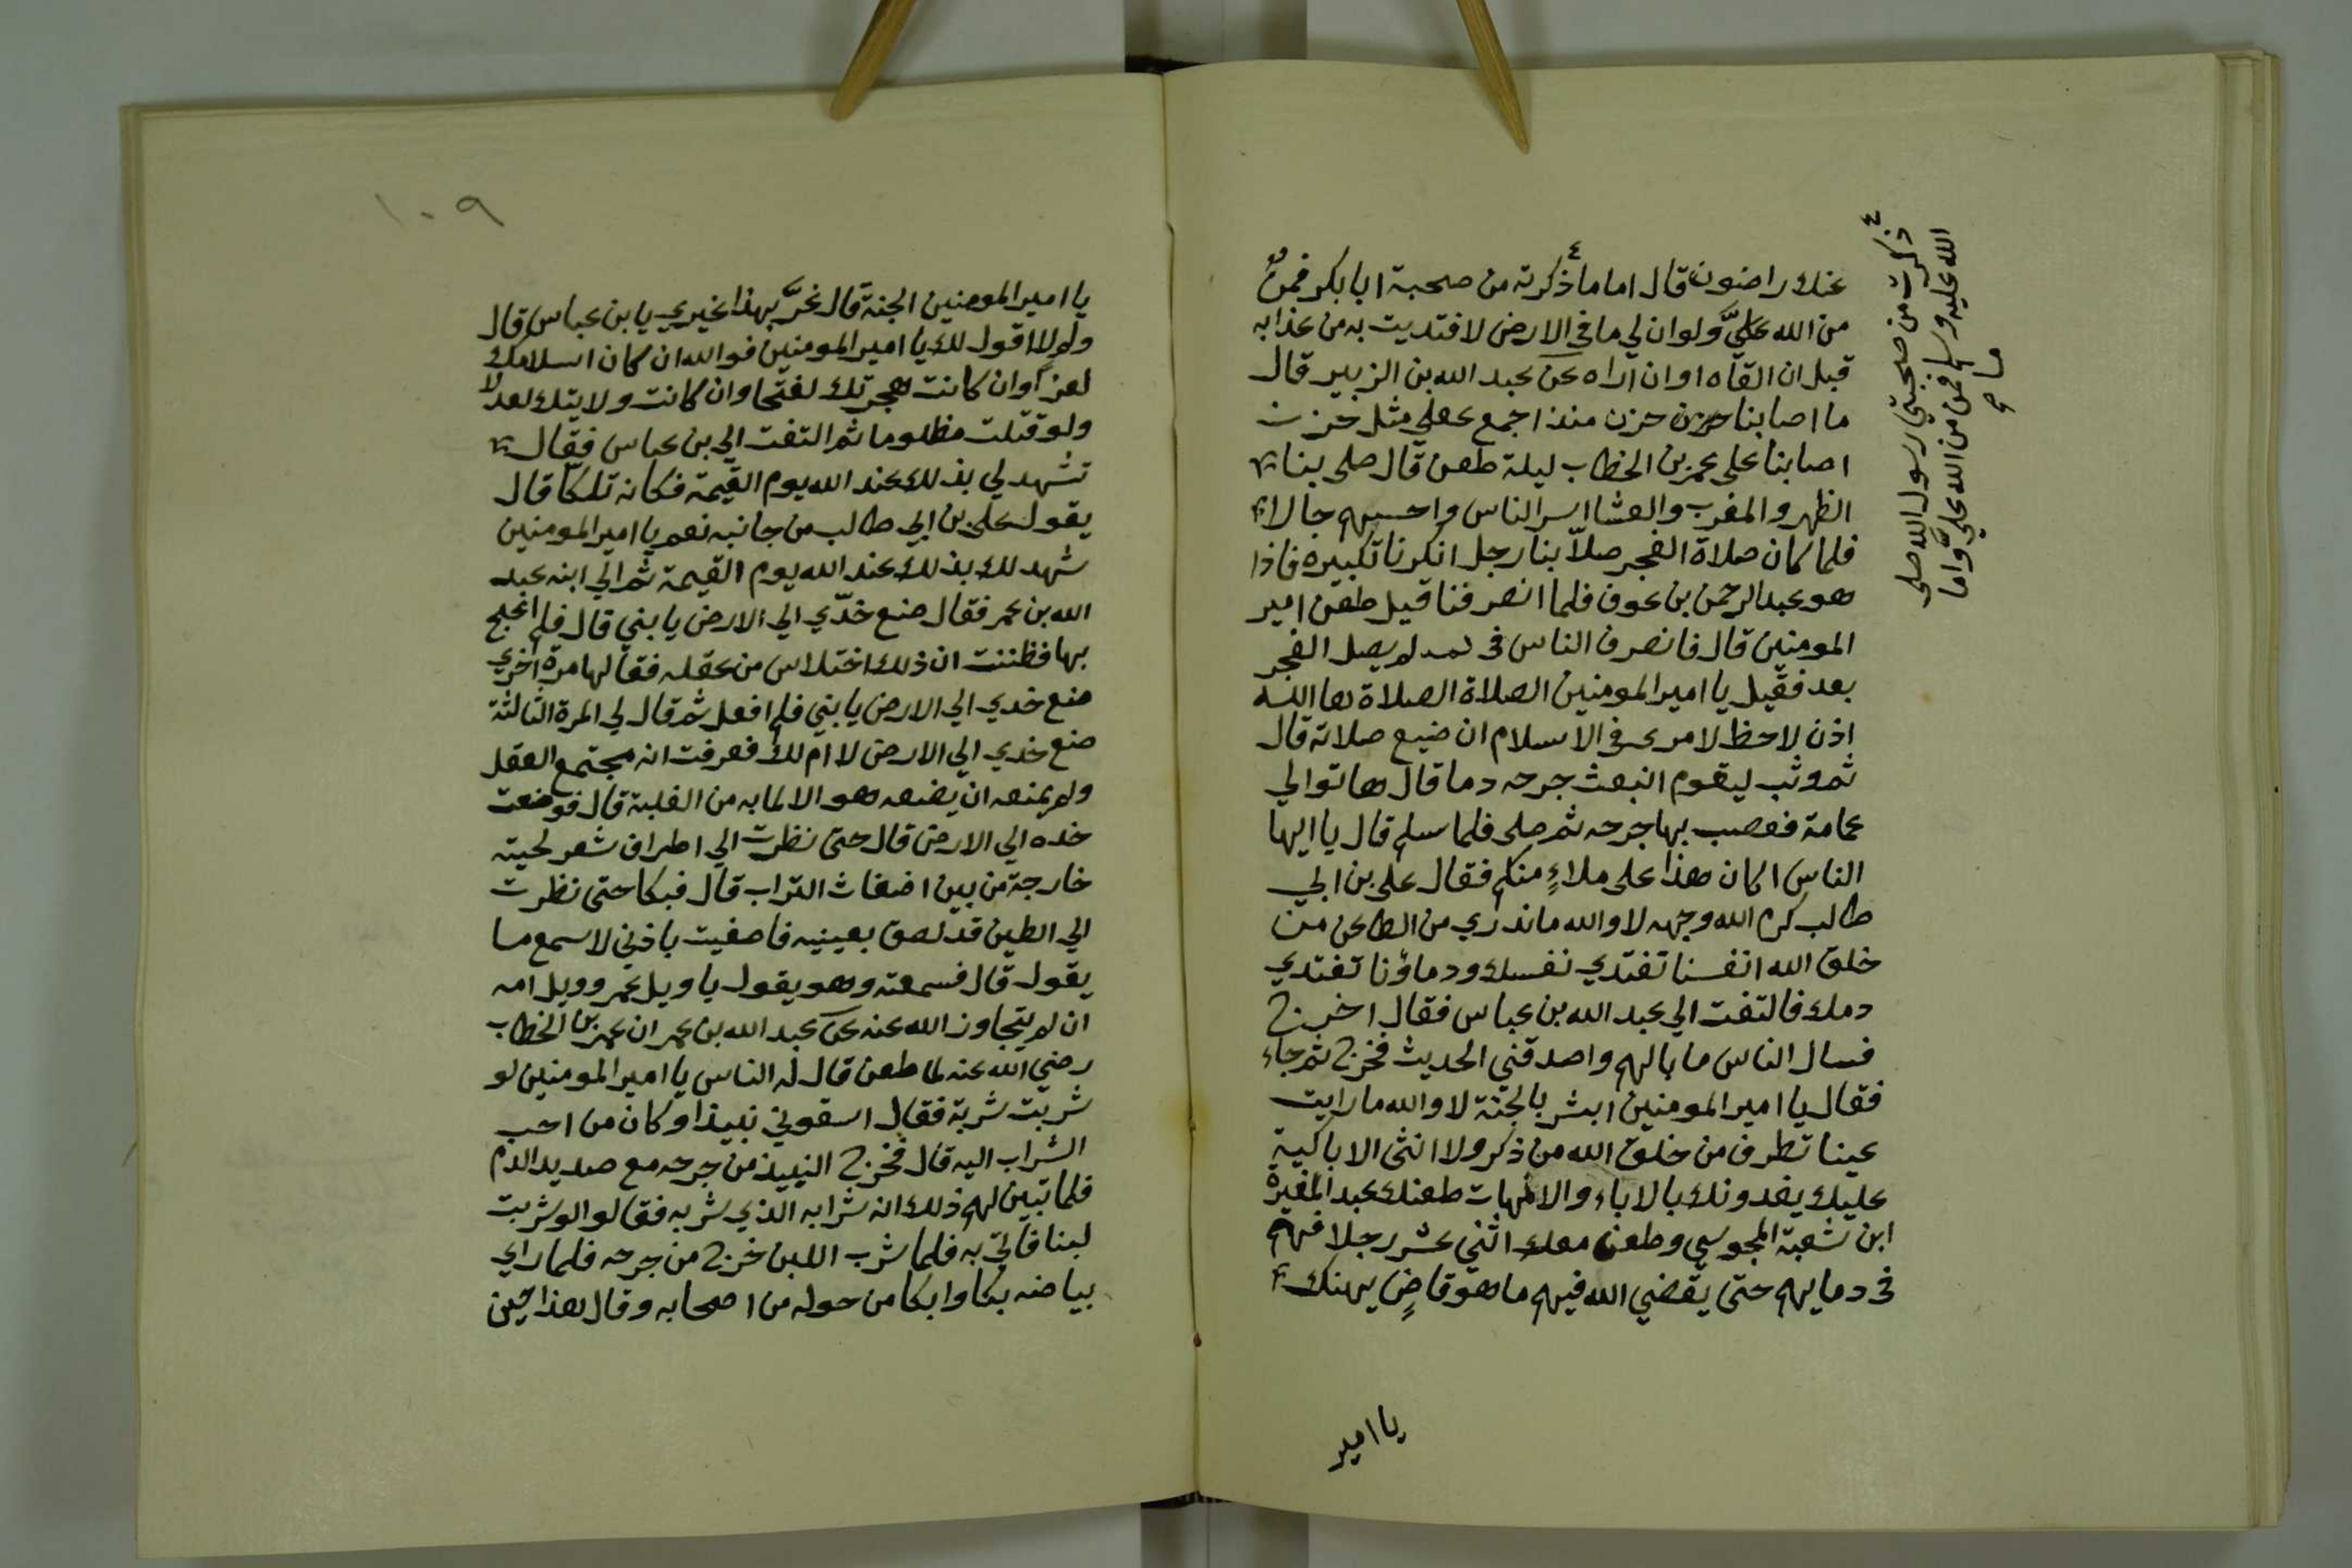 عنك راضون قال اما ما ذكرته من صحبة ابا بكر فمنٌ
من الله عليَّ ولو ان لي ما في الارض لافتديت به من عذابه
قبل ان القاه او ان اراه عن عبد الله بن الزبير قال
ما اصابنا حزن منذ اجمع عقلي مثل حزن
اصابنا على عمر بن الخطاب ليلة طعن قال صلى بنا
الظهر والمغرب والعشا اسر الناس واحسبهم حالا
فلما كان صلاة الفجر صلاّ بنا رجل انكرنا تكبيره فاذا
هو عبد الرحمن بن عوف فلما انصرفنا قيل طعن امير
المومنين قال فانصرف الناس في لم يصل الفجر
بعد فقيل يا امير المومنين الصلاة الصلاة ها الله
اذن لا حظ لامرء في الاسلام ان ضيع صلاته قال
ثم وثب ليقوم انبعث جرحه دما قال هاتوا لي
عمامة فعصب بها جرحه ثم صلى فلما سلم قال يا ايها
الناس اكان هذا على ملاءٍ منكم فقال على بن ابي
طالب كرم الله وجهه لا والله ما ندري من الطاعن من
خلق الله انفسنا تفتدي نفسك ودماؤنا تفتدي
دمك فالتفت الي عبد الله بن عباس فقال اخرج
فسال الناس ما بالهم واصدقني الحديث فخرج ثم جاء
فقال يا امير المومنين ابشر بالجنة لا والله ما رايت
عينا تطرف من خلق الله من ذكر ولا انثى الا باكية
عليك يفدونك بالاباء والامهات طعنك عبد المغيرة
ابن شعبة المجوسي وطعن معك اثني عشر رجلا فهم
في دمايهم حتى يقضي الله فيهم ما هو قاضٍ يهنك
يا امير
٤
ذكرت من صحبتي رسول الله صلى
الله عليه وسلم فمن من الله عليَّ واما
ما صح
١٠٩
يا امير المومنين الجنة قال غرَّ بهذا غيري يا بن عباس قال
ولم لا اقول لك يا امير المومنين فوالله ان كان اسلامك
لعزًا وان كانت هجرتك لفتحا وان كانت ولايتك لعدلا
ولو قتلت مظلوما ثم التفت الي بن عباس فقال
تشهد لي بذلك عند الله يوم القيمة فكانه تلكا قال
يقول على بن ابي طالب من جانبه نعم يا امير المومنين
شهد لك بذلك عند الله يوم القيمة ثم الي ابنه عبد
الله بن عمر فقال ضع خدّي الي الارض يا بني قال فلم اعج
بها فظننت ان ذلك اختلاس من عقله فقالها مرة اخري
ضع خدي الي الارض يا بني فلم افعل ثم قال لي المرة الثالثة
ضع خدي الي الارض لا ام لك فعرفت انه مجتمع العقل
ولم يمنعه ان يضعه هو الا لما به من الغلبة قال فوضعت
خده الي الارض قال حتى نظرت الي اطراف شعر لحيته
خارجة من بين اضغاث التراب قال فبكا حتى نظرت
الي الطين قد لصق بعينيه فاصغيت باذني لاسمع ما
يقول قال فسمعته وهو يقول يا ويل عمر وويل امه
ان لم يتجاوز الله عنه عن عبد الله بن عمر ان عمر بن الخطاب
رضي الله عنه لما طعن قال له الناس يا امير المومنين لو
شربت شربة فقال اسقوني نبيذا وكان من احب
الشراب اليه قال فخرج النبيذ من جرحه مع صديد الدم
فلما تبين لهم ذلك انه شرابه الذي شربه فقالوا لو شربت
لبنا فاتي به فلما شرب اللبن خرج من جرحه فلما راي
بياضه بكا وابكا من حوله من اصحابه وقال هذا حين